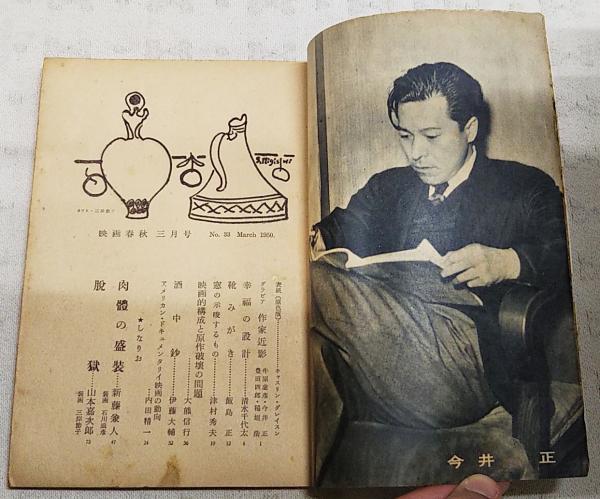 カット・三岸節子
映画春秋 三月号 No. 33 March 1950.
表紙(原色版)……キャスリン・グレイスン
グラビア 作家近影 牛原虚彦・今井正 豊田四郎・稲垣浩 1
幸福の設計……清水千代太 4
靴みがき……飯島正 12
窓の示唆するもの……津村秀夫 19
映画的構成と原作破壊の問題……大熊信行 26
酒中鈔……伊藤大輔 32
アメリカン・ドキュメンタリイ映画の動向……内田精一 24
★しなりお
肉體の盛装……新藤兼人 47
装画 石川滋彦
脱獄……山本嘉次郎 73
装画 三岸節子
今井正